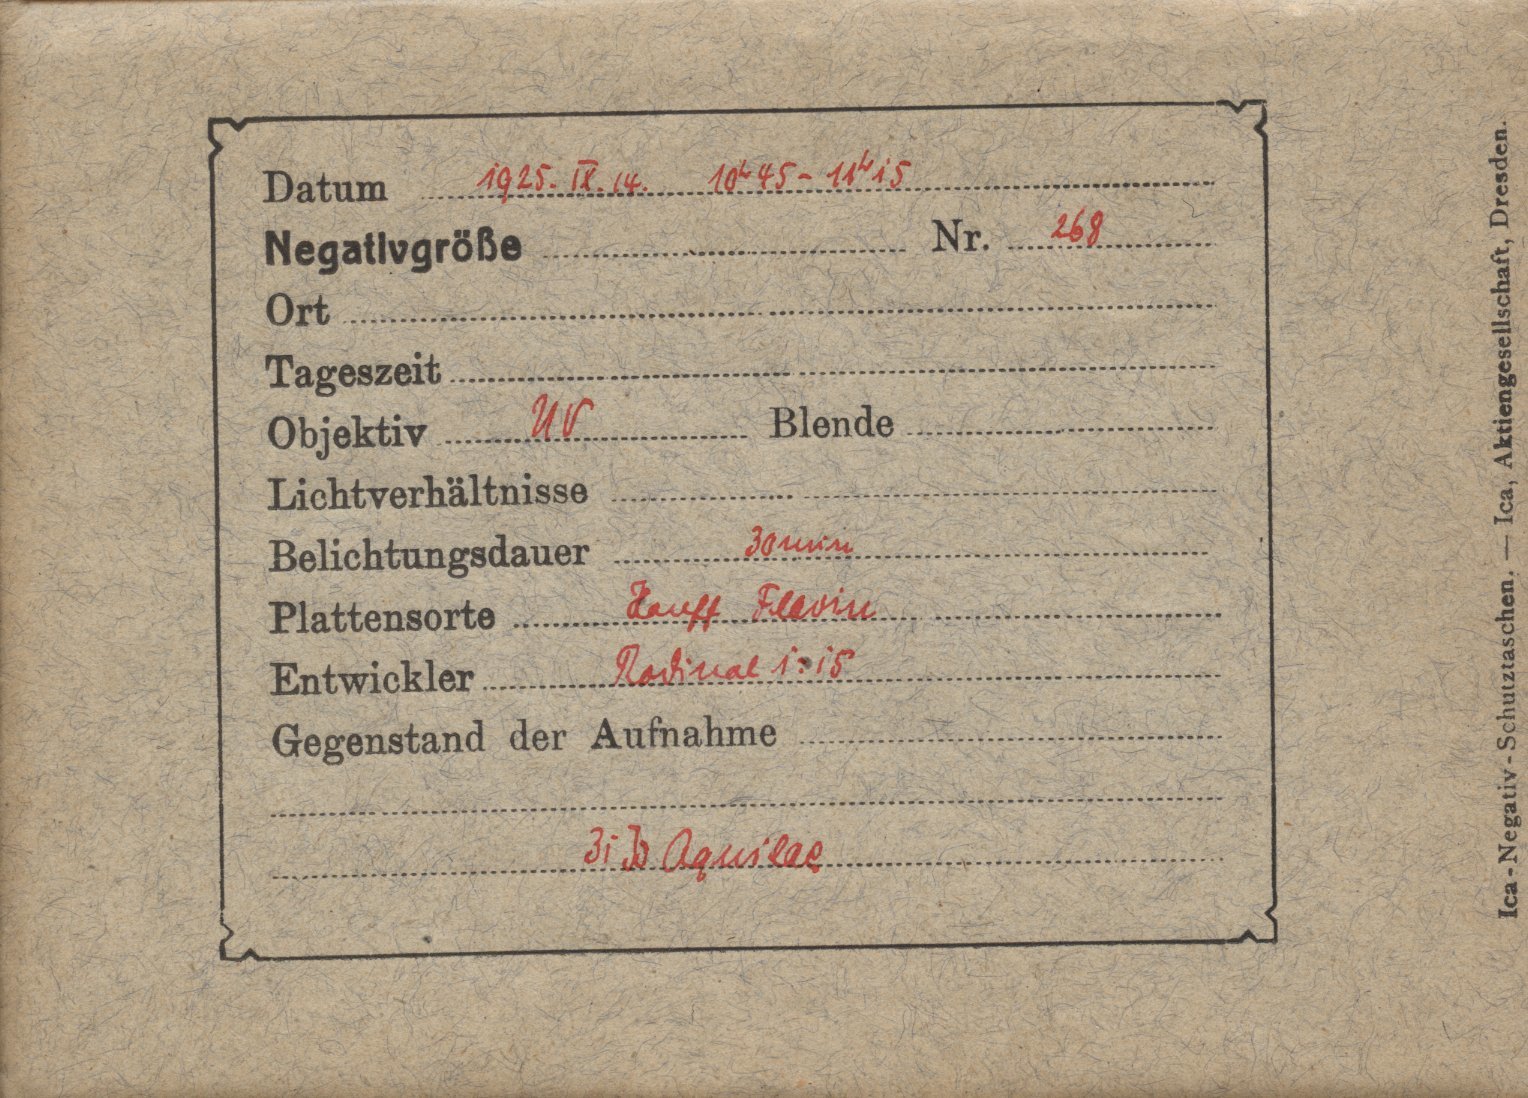 Datum 1925. IX. 14. 10h45 - 11h15
Negativgröße Nr. 268
Ort
Tageszeit
Objektiv UV Blende
Lichtverhältnisse
Belichtungsdauer 30 min
Plattensorte Hauff Flavin
Entwickler Rodinal 1:15
Gegenstand der Aufnahme
31 b Aquilae
Ica-Negativ-Schutztaschen. — Ica, Aktiengesellschaft, Dresden.